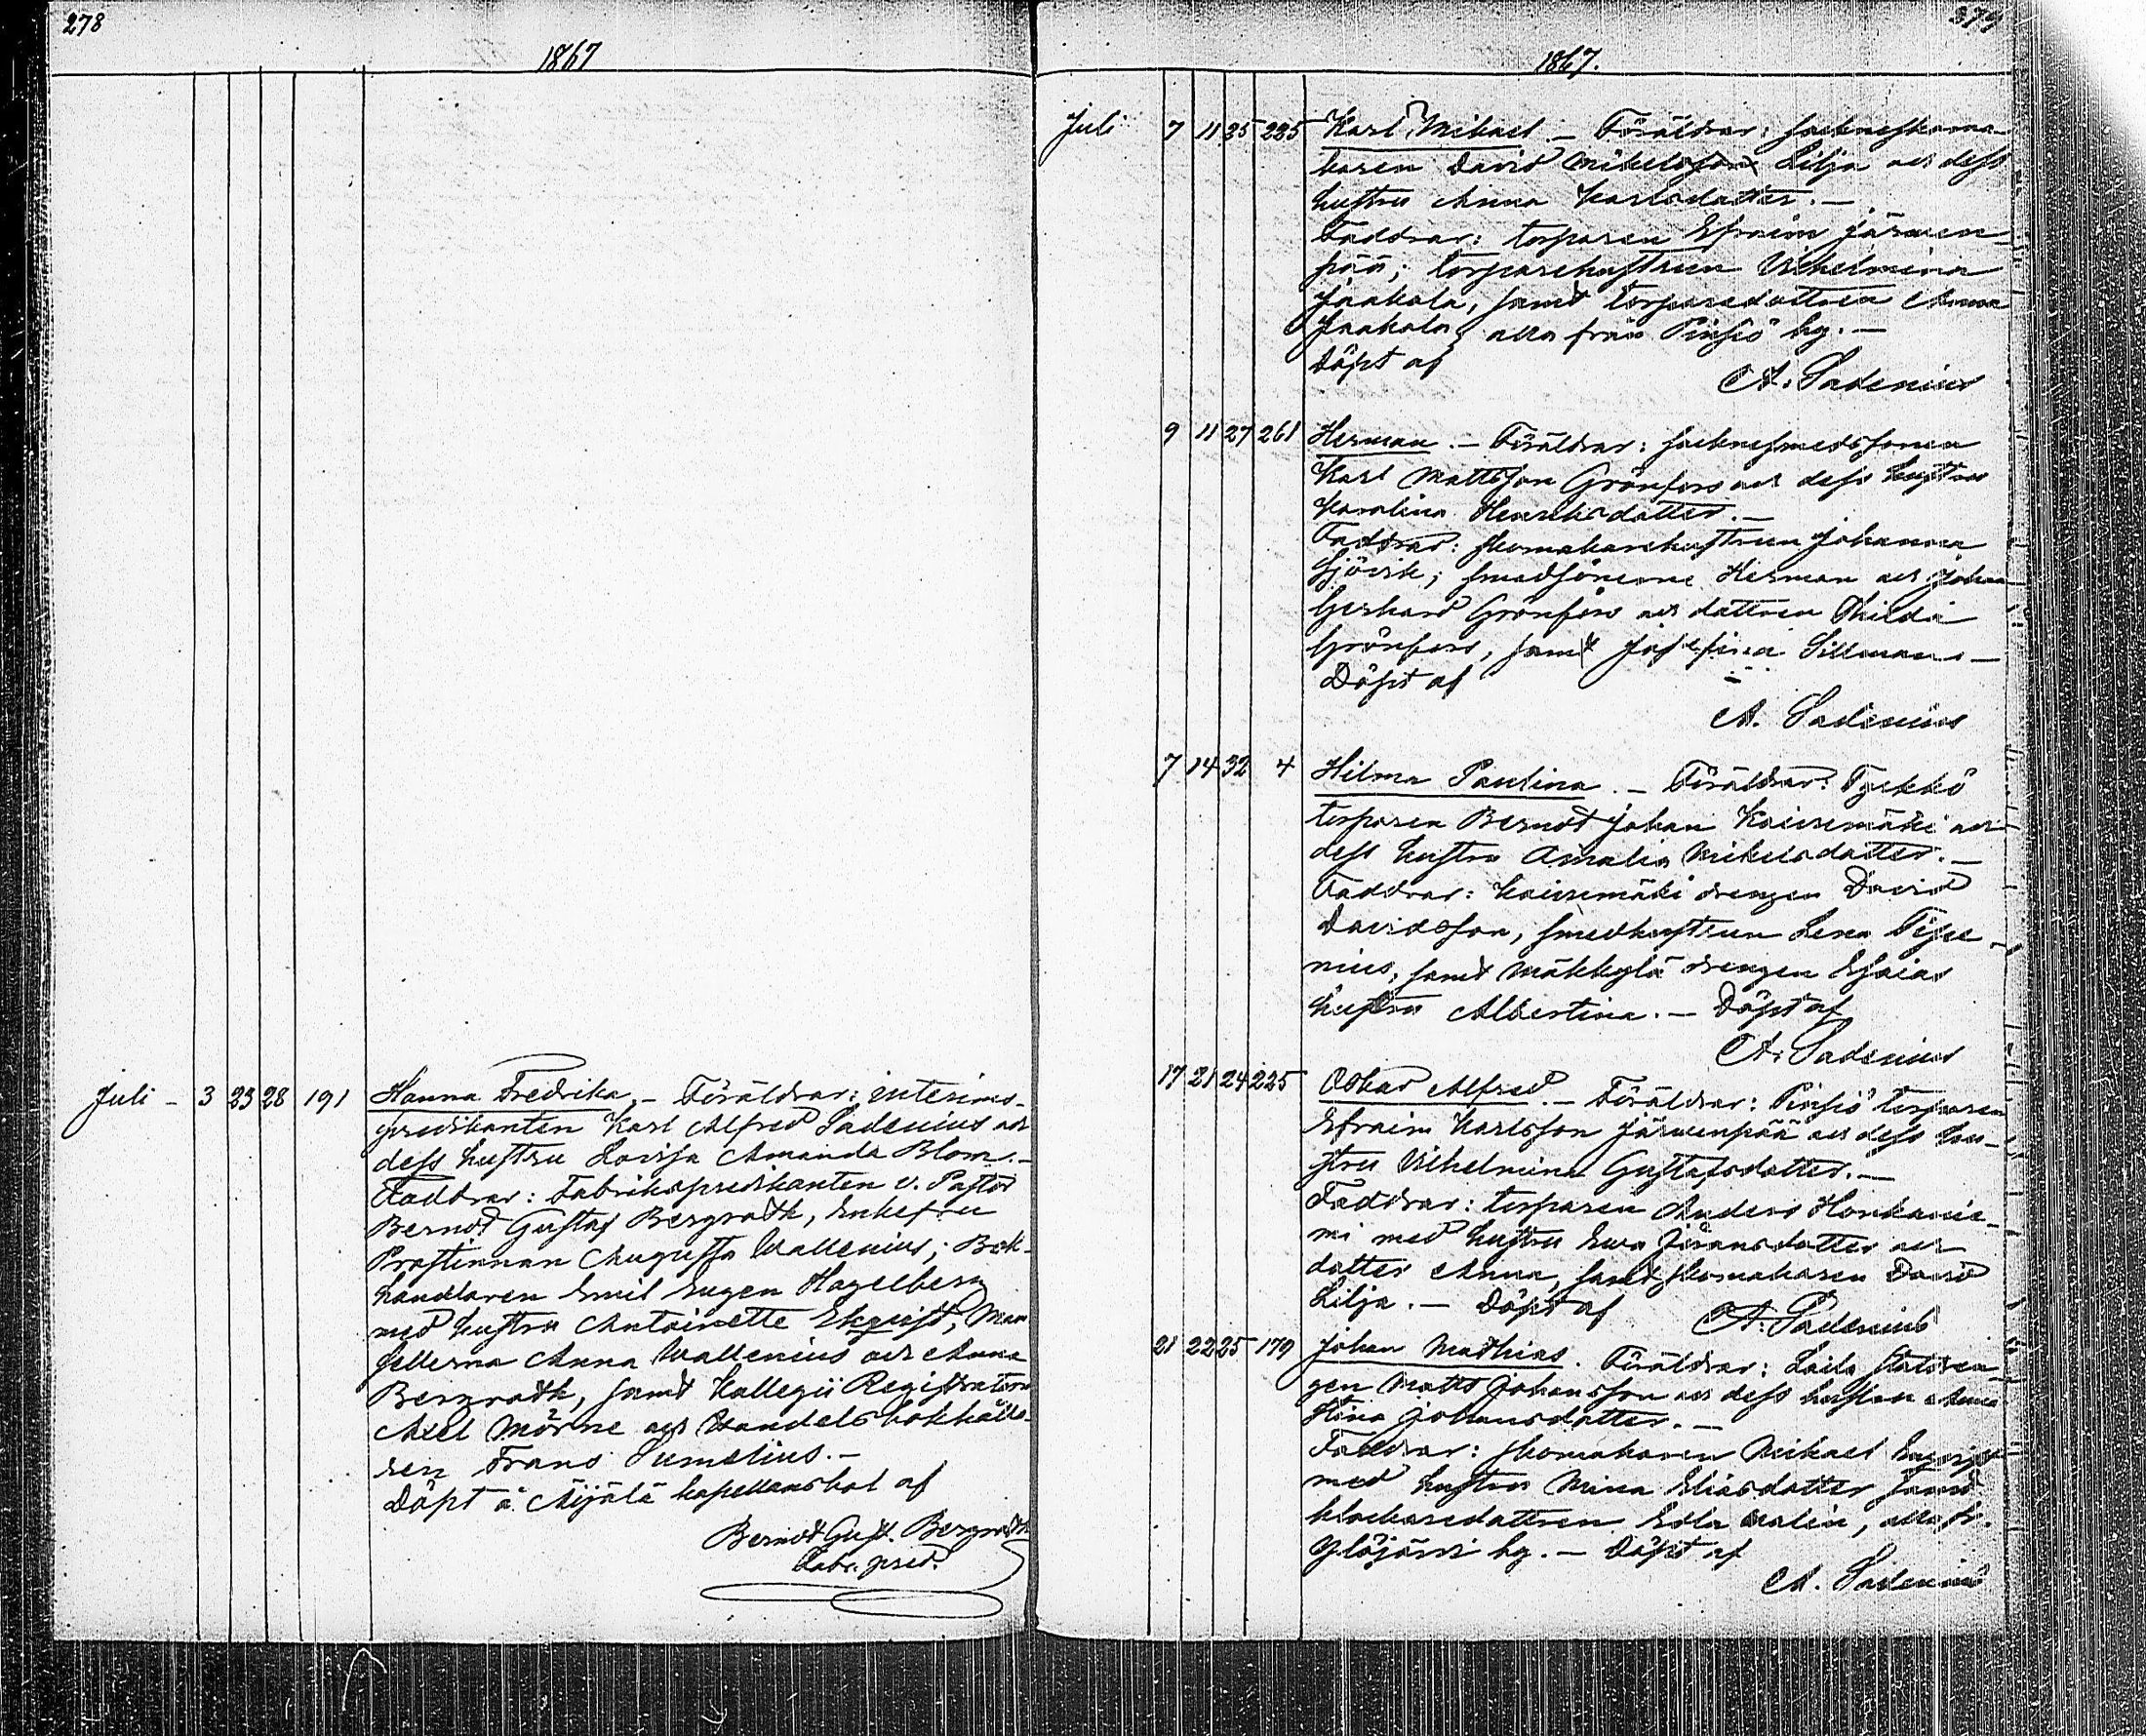 278
1867
Juli - 3 23 28 191 Hanna Fredrika. - Föräldrar: interims-
predikanten Karl Alfred Sadenius och
dess hustru Lovisa Amanda Blom. -
Faddrar: Fabrikspredikanten v. Pastor
Berndt Gustaf Bergroth, Enkefru
Prostinnan Augusta Wallenius; Bok-
handlaren Emil Eugen Hagelberg
med hustru Antoinette Ekqvist; Mam
sellerna Anna Wallenius och Anna
Bergroth, samt Kollegii Registratorn
Axel Mörne och Handelsbokhålla-
ren Frans Sumelius. -
Döpt å Äijälä kapellansbol af
Berndt Gust. Bergroth
Fabr. pred.
279
1867.
Juli 7 11 35 225 Karl Mikael. - Föräldrar: sockneskoma-
karen David Mikelsson Lilja och dess
hustru Anna Karlsdotter. -
Faddrar: torparen Efraim Järven-
pää; torparehustrun Vilhelmina
Jaakola, samt torparedottren Anna
Jaakola, alla från Pinsiö by. -
Döpt af
A. Sadenius
9 11 27 261 Herman. - Föräldrar: socknesmedssonen
Karl Mattsson Grönfors och dess hustru
Karolina Henriksdotter. -
Faddrar: skomakarehustrun Johanna
Sjövik; smedsönerne Herman och Johan
Gerhard Grönfors och dottren Hilda
Grönfors, samt Josefina Sillman. -
Döpt af
A. Sadenius
7 14 32 4 Hilma Paulina. - Föräldrar: Tyrkkö
torparen Berndt Johan Koivumäki och
dess hustru Amalia Mikelsdotter. -
Faddrar: Koivumäki drengen David
Davidsson, smedhustrun Lena
samt Mäkkylä drengen Esaias
hustru Albertina. - Döpt af
A. Sadenius
17 21 24 225 Oskar Alfred. - Föräldrar: Pinsiö torparen
Efraim Karlsson Järvenpää och dess hu-
stru Vilhelmina Gustafsdotter. -
Faddrar: torparen Anders Honkanie-
mi med hustru Eva Göransdotter och
dotter Anna, samt skomakaren David
Lilja. - Döpt af A. Sadenius
21 22 25 179 Johan Mathias. Föräldrar: statdren-
gen Matts Johansson och dess hustru Anna
Stina Johansdotter. -
Faddrar: skomakaren Mikael
med hustru Mina Eliasdotter samt
klockaredottren Edla Malin, alla fr.
Ylöjärvi by. - Döpt af
A. Sadenius